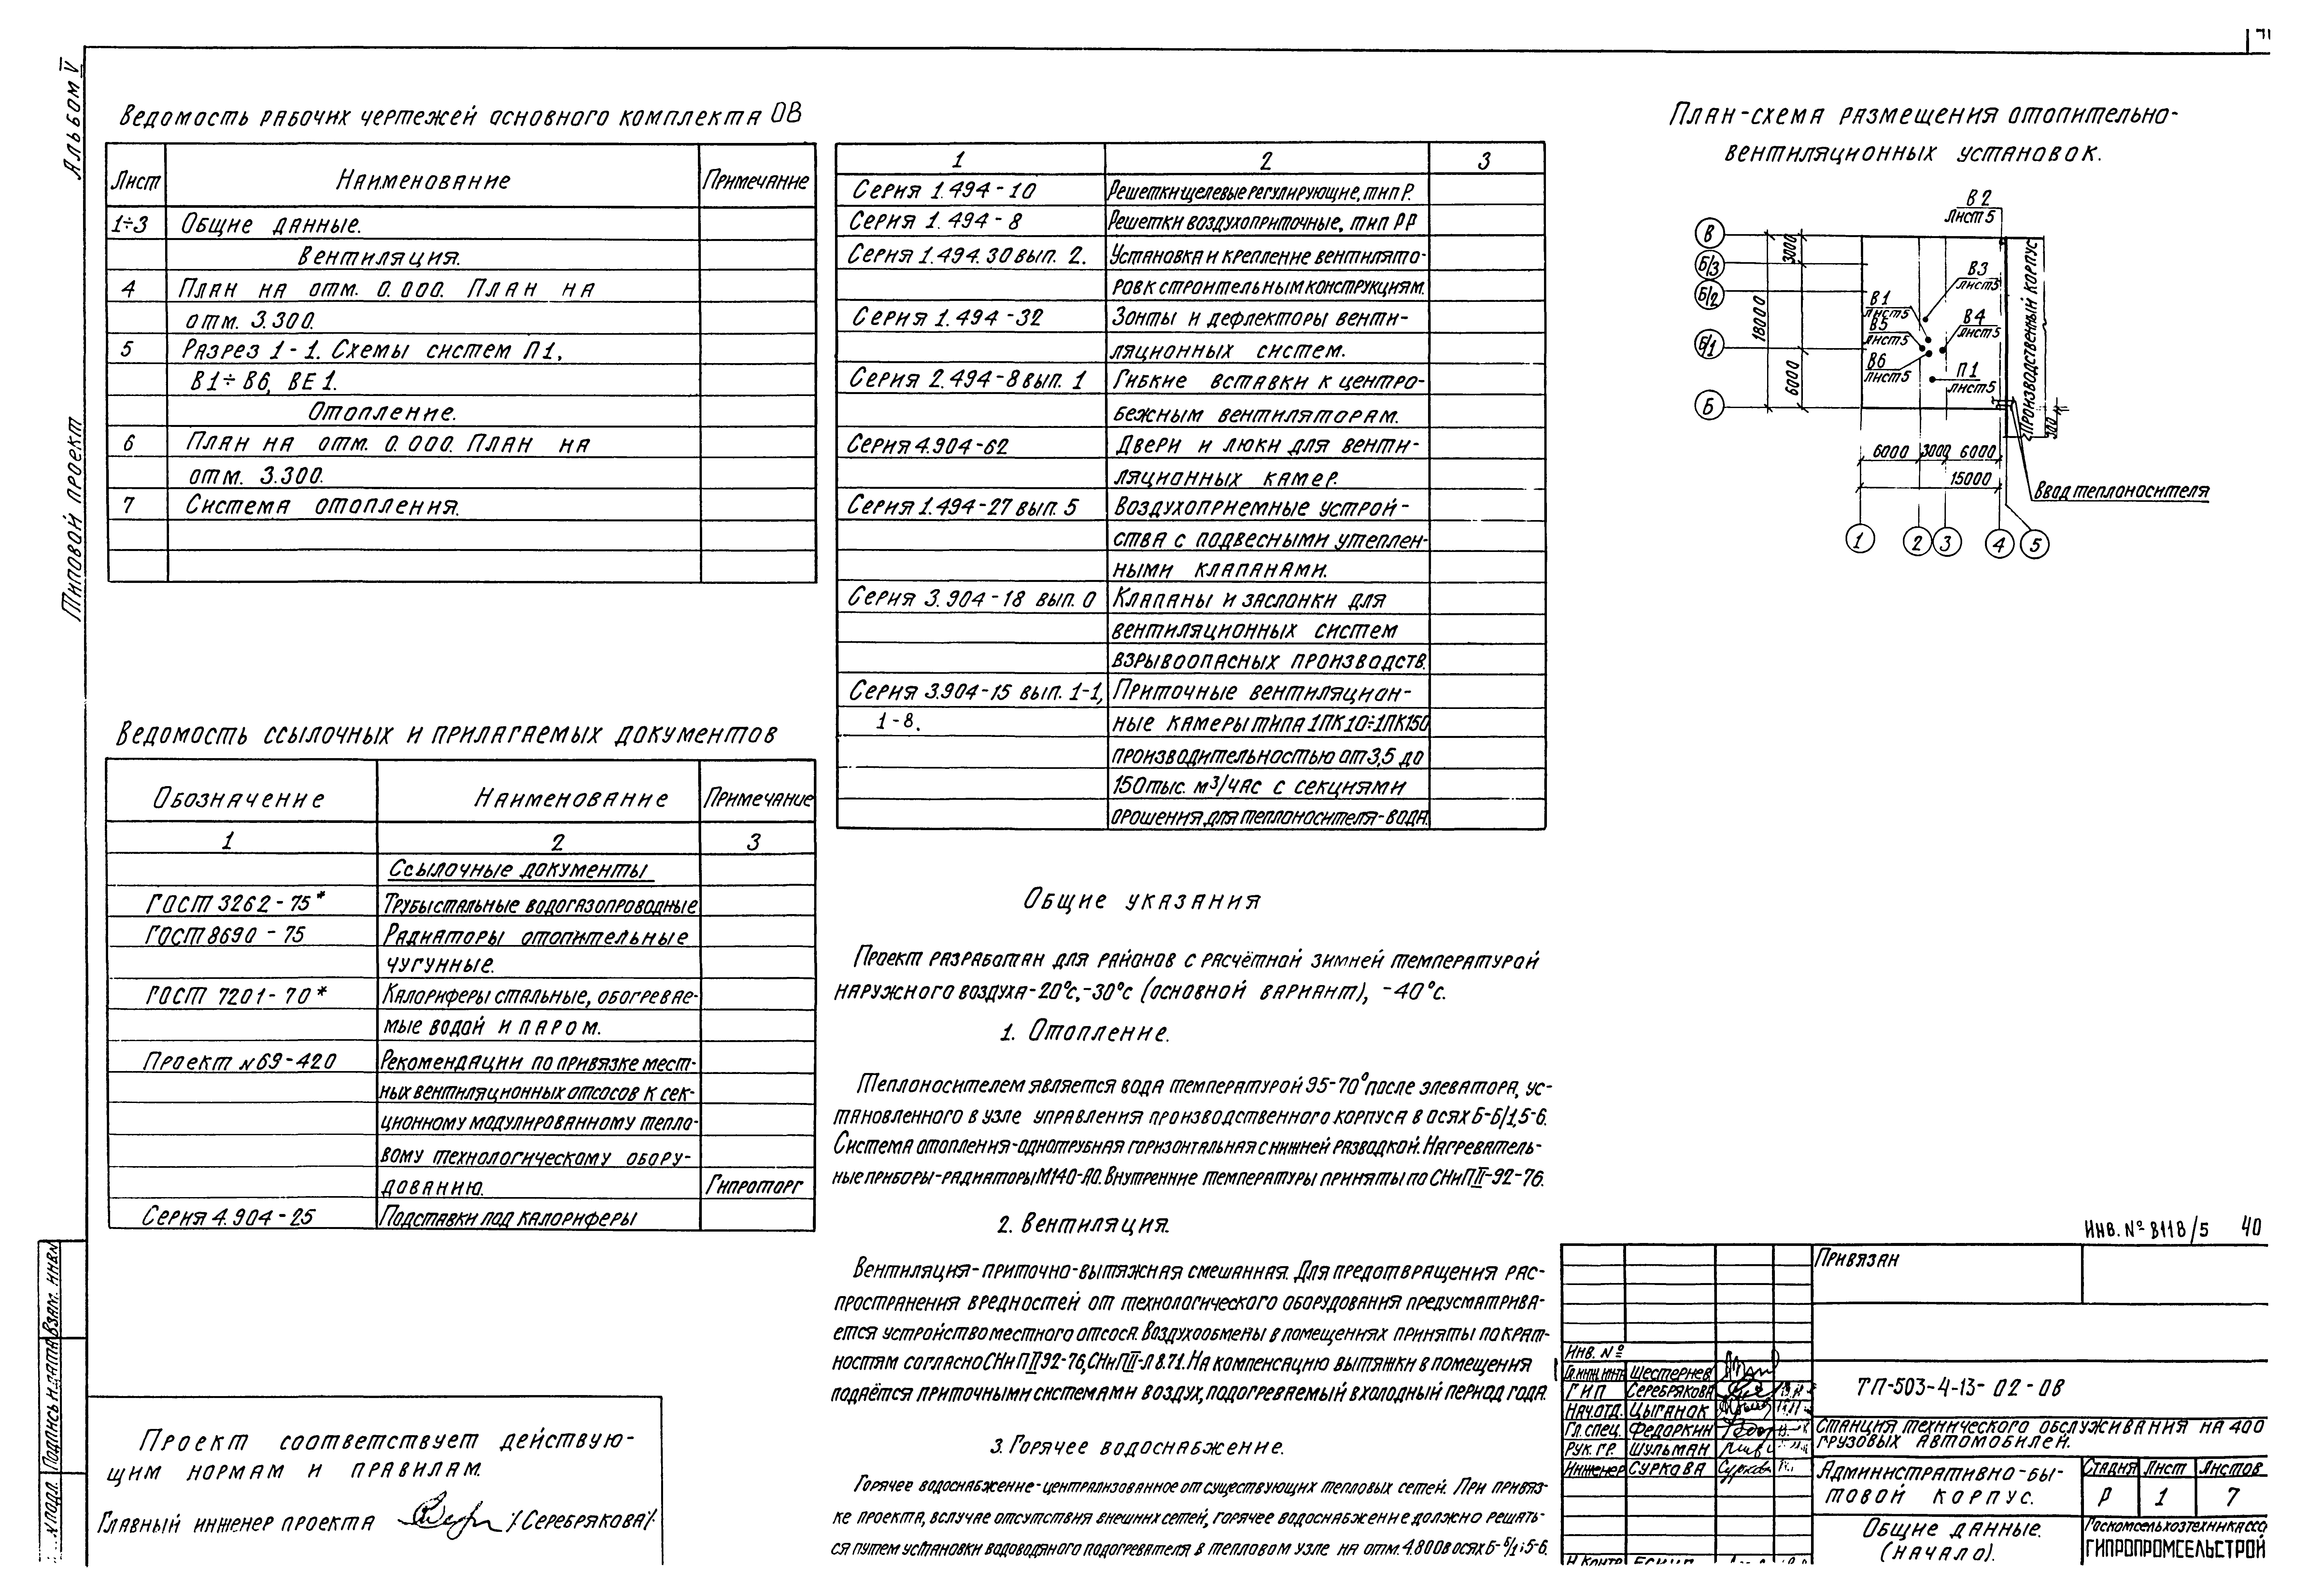 Альбом V
Типовой проект
Ведомость рабочих чертежей основного комплекта ОВ
Лист Наименование Примечание
1÷3 Общие данные.
Вентиляция.
4 План на отм. 0.000. План на
отм. 3.300.
5 Разрез 1-1. Схемы систем П1,
В1÷В6, ВЕ1.
Отопление.
6 План на отм. 0.000. План на
отм. 3.300.
7 Система отопления.
Ведомость ссылочных и прилагаемых документов
Обозначение Наименование Примечание
1 2 3
Ссылочные документы
ГОСТ 3262-75* Трубы стальные водогазопроводные
ГОСТ 8690-75 Радиаторы отопительные
чугунные.
ГОСТ 7201-70* Калориферы стальные, обогревае-
мые водой и паром.
Проект №69-420 Рекомендации по привязке мест-
ных вентиляционных отсосов к сек-
ционному модулированному тепло-
вому технологическому обору-
дованию. Гипроторг
Серия 4.904-25 Подставки под калориферы
1 2 3
Серия 1.494-10 Решетки щелевые регулирующие, тип Р.
Серия 1.494-8 Решетки воздухоприточные, тип РР
Серия 1.494.30 вып. 2. Установка и крепление вентилято-
ров к строительным конструкциям.
Серия 1.494-32 Зонты и дефлекторы венти-
ляционных систем.
Серия 2.494-8 вып. 1 Гибкие вставки к центро-
бежным вентиляторам.
Серия 4.904-62 Двери и люки для венти-
ляционных камер.
Серия 1.494-27 вып. 5 Воздухоприемные устрой-
ства с подвесными утеплен-
ными клапанами.
Серия 3.904-18 вып. 0 Клапаны и заслонки для
вентиляционных систем
взрывоопасных производств.
Серия 3.904-15 вып. 1-1, Приточные вентиляцион-
1-8. ные камеры типа 1ПК10÷1ПК150
производительностью от 3,5 до
150 тыс. м3/час с секциями
орошения для теплоносителя-вода.
Общие указания
Проект разработан для районов с расчётной зимней температурой
наружного воздуха -20°с, -30°с (основной вариант), -40°с.
1. Отопление.
Теплоносителем является вода температурой 95-70° после элеватора, ус-
тановленного в узле управления производственного корпуса в осях Б-Б/1,5-6.
Система отопления-однотрубная горизонтальная с нижней разводкой. Нагреватель-
ные приборы-радиаторы М140-АО. Внутренние температуры приняты по СНиП II-92-76.
2. Вентиляция.
Вентиляция-приточно-вытяжная смешанная. Для предотвращения рас-
пространения вредностей от технологического оборудования предусматрива-
ется устройство местного отсоса. Воздухообмены в помещениях приняты по крат-
ностям согласно СНиП II 92-76, СНиП II-Л 8.71. На компенсацию вытяжки в помещения
подаётся приточными системами воздух, подогреваемый в холодный период года.
3. Горячее водоснабжение.
Горячее водоснабжение-централизованное от существующих тепловых сетей. При привяз-
ке проекта, в случае отсутствия внешних сетей, горячее водоснабжение должно решать-
ся путем установки водоводяного подогревателя в тепловом узле на отм. 4.800 в осях Б-Б/1; 5-6.
План-схема размещения отопительно-
вентиляционных установок.
В2
лист 5
В
Б/3
Б/2
Б/1
Б
3000
18000
6000
В3
лист 5
В1
лист 5
В5
лист 5
В4
лист 5
В6
лист 5
П1
лист 5
Производственный корпус
300
6000 3000 6000
15000
Ввод теплоносителя
1 2 3 4 5
Проект соответствует действую-
щим нормам и правилам.
Главный инженер проекта /Серебрякова/.
Взам. инв№
Подпись и дата
№ подл.
Инв. № 8118/5 40
Привязан
Инв. №
Гл. инж. инта Шестернев
ГИП Серебрякова
Нач. отд. Цыганок
Гл. спец. Федоркин
Рук. гр. Шульман
Инженер Суркова
Н. контр
ТП-503-4-13-02-ОВ
Станция технического обслуживания на 400
грузовых автомобилей.
Административно-бы-
товой корпус.
Стадия Лист Листов
Р 1 7
Общие данные.
(начало).
Госкомсельхозтехника ссср
ГИПРОПРОМСЕЛЬСТРОЙ